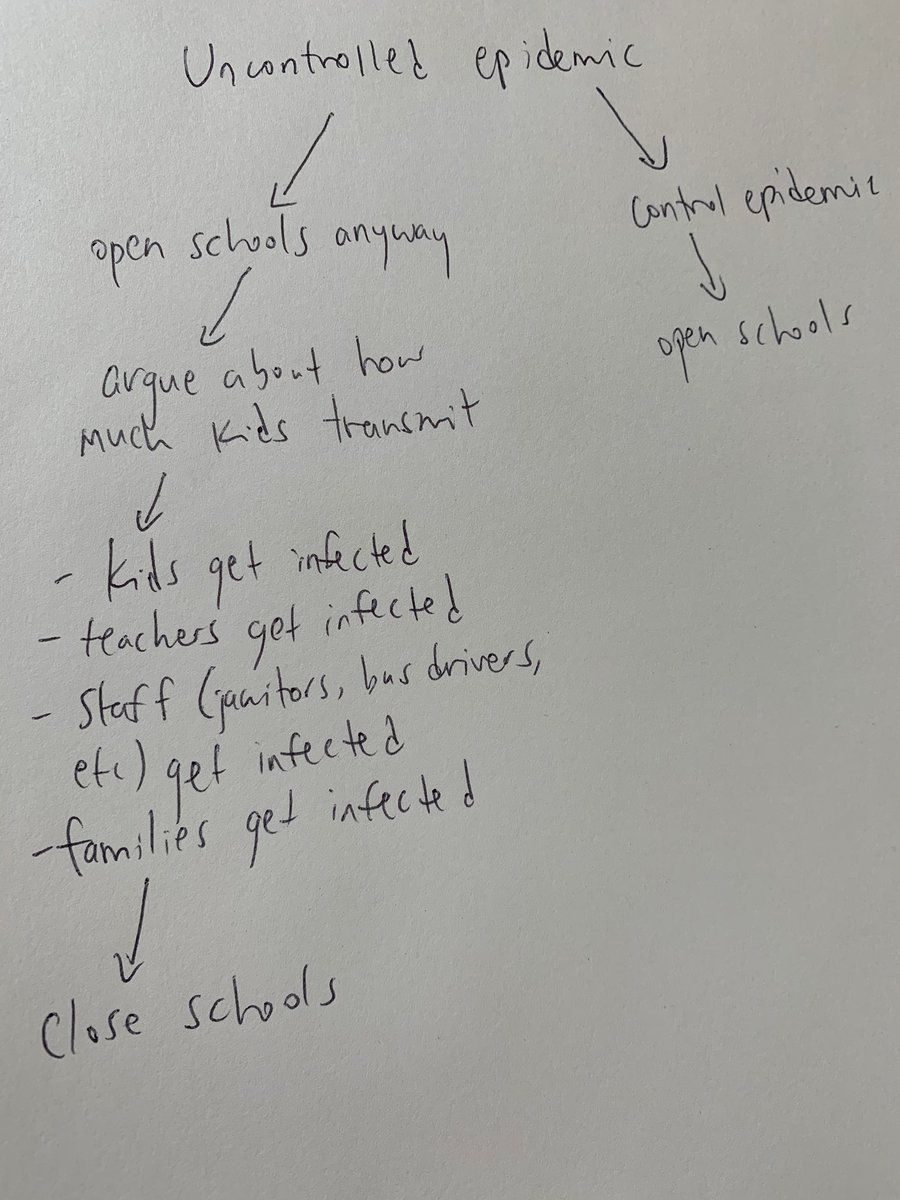 Uncontrolled epidemic
open schools anyway
argue about how
much kids transmit
- kids get infected
- teachers get infected
- Staff (janitors, bus drivers,
etc) get infected
- families get infected
Close schools
control epidemic
open schools